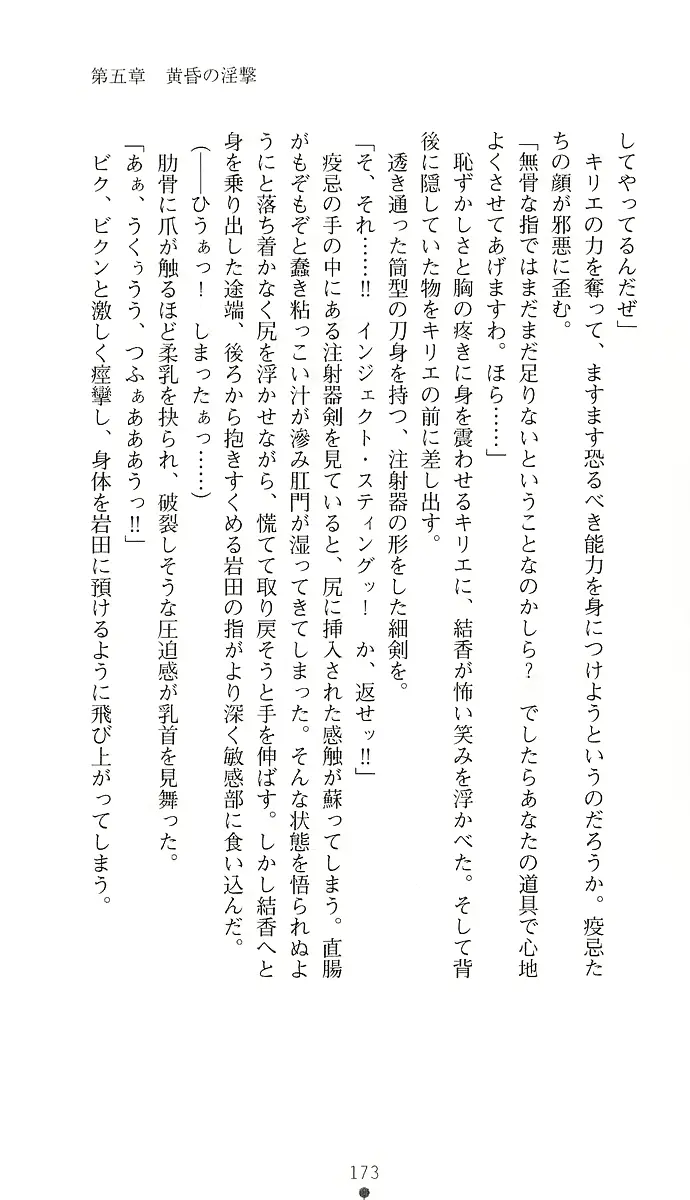 第五章　黄昏の淫撃
してやってるんだぜ」
　キリエの力を奪って、ますます恐るべき能力を身につけようというのだろうか。疫忌た
ちの顔が邪悪に歪む。
「無骨な指ではまだまだ足りないということなのかしら？　でしたらあなたの道具で心地
よくさせてあげますわ。ほら……」
　恥ずかしさと胸の疼きに身を震わせるキリエに、結香が怖い笑みを浮かべた。そして背
後に隠していた物をキリエの前に差し出す。
　透き通った筒型の刀身を持つ、注射器の形をした細剣を。
「そ、それ……!!　インジェクト・スティングッ！　か、返せッ!!」
　疫忌の手の中にある注射器剣を見ていると、尻に挿入された感触が蘇ってしまう。直腸
がもぞもぞと蠢き粘っこい汁が滲み肛門が湿ってきてしまった。そんな状態を悟られぬよ
うにと落ち着かなく尻を浮かせながら、慌てて取り戻そうと手を伸ばす。しかし結香へと
身を乗り出した途端、後ろから抱きすくめる岩田の指がより深く敏感部に食い込んだ。
（――ひうぁっ！　しまったぁっ……）
　肋骨に爪が触るほど柔乳を抉られ、破裂しそうな圧迫感が乳首を見舞った。
「あぁ、うくぅうう、つふぁあああうっ!!」
　ビク、ビクンと激しく痙攣し、身体を岩田に預けるように飛び上がってしまう。
173